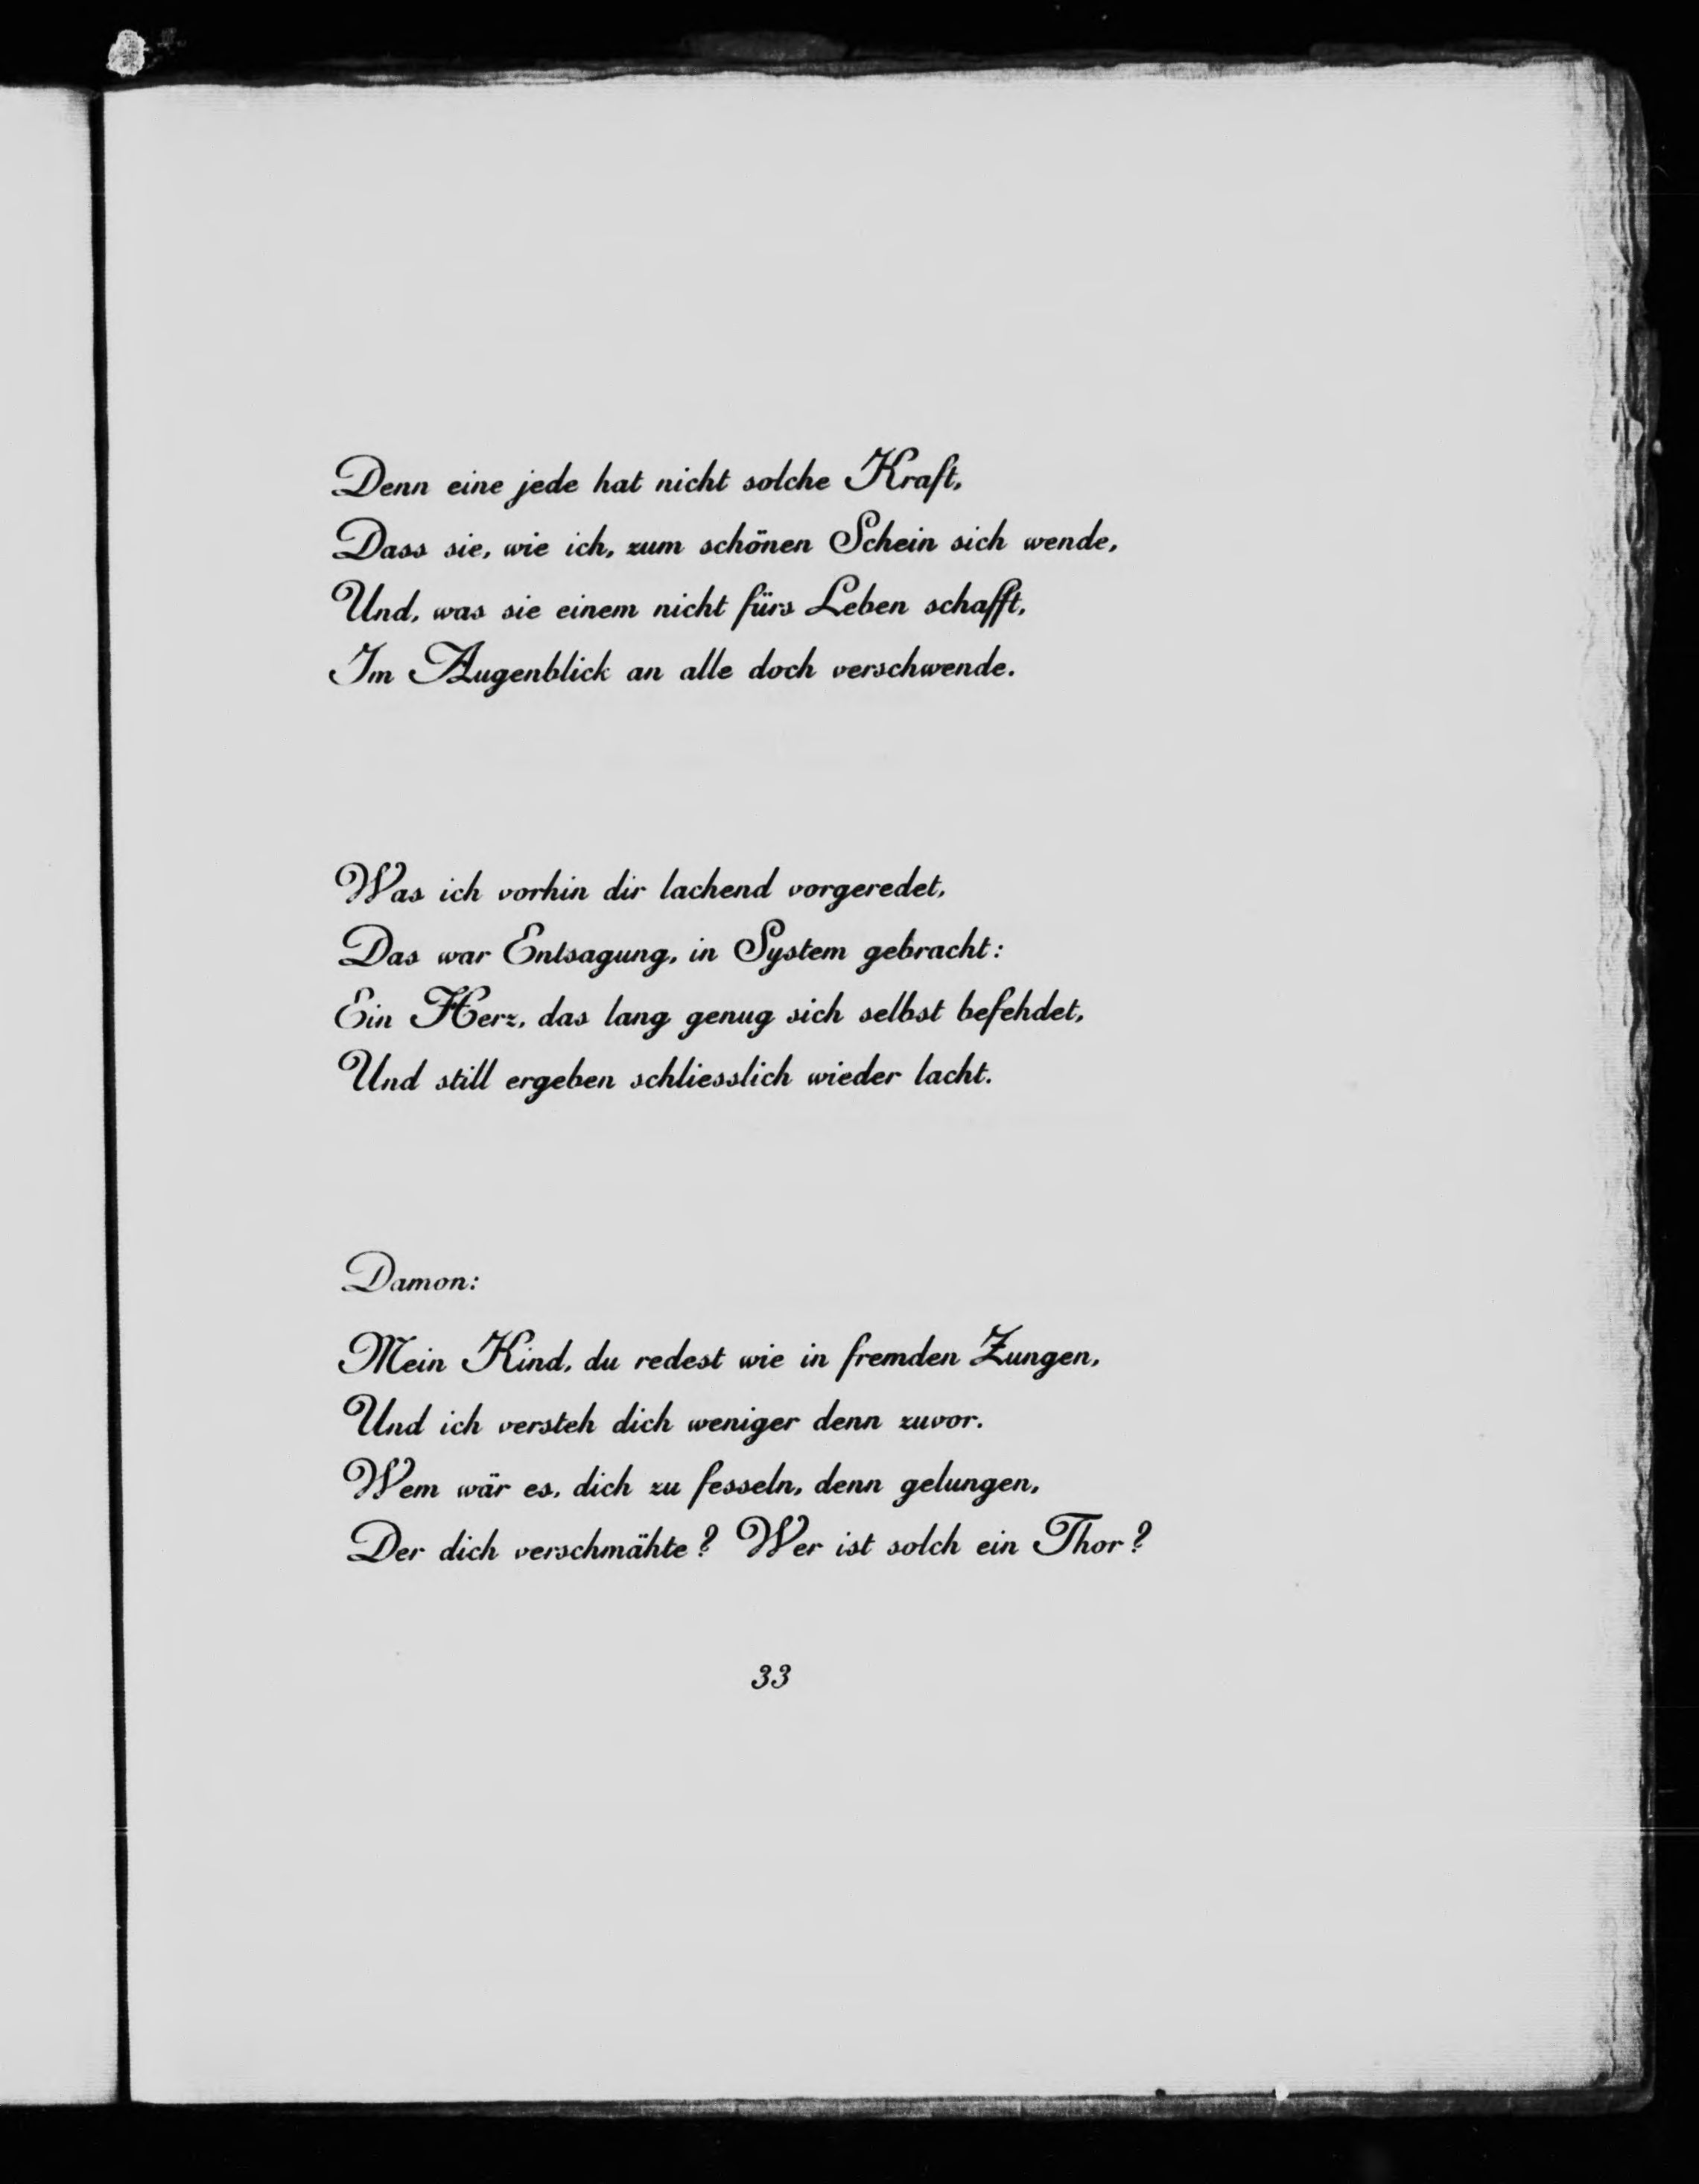 Denn eine jede hat nicht solche Kraft,
Dass sie, wie ich, zum schönen Schein sich wende,
Und, was sie einem nicht fürs Leben schafft,
Im Augenblick an alle doch verschwende.
Was ich vorhin dir lachend vorgeredet,
Das war Entsagung, in System gebracht:
Ein Herz, das lang genug sich selbst befehdet,
Und still ergeben schliesslich wieder lacht.
Damon:
Mein Kind, du redest wie in fremden Zungen,
Und ich versteh dich weniger denn zuvor.
Wem wär es, dich zu fesseln, denn gelungen,
Der dich verschmähte? Wer ist solch ein Thor?
33